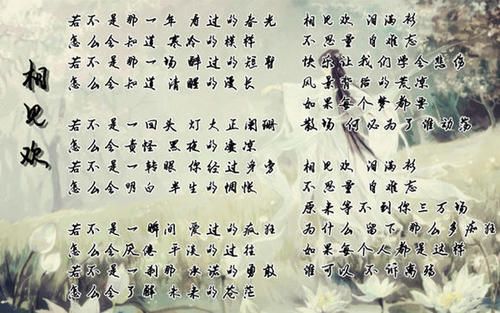 相见欢
若不是那一年看过的春光
怎么会知道 寒冷的模样
若不是那一场醉过的短暂
怎么会知道 清醒的漫长
若不是一回头 灯火正阑珊
怎么会责怪 黑夜的凄凉
若不是一转眼 你经过身旁
怎么会明白 半生的惆怅
若不是一瞬间 爱过的疯狂
怎么会厌倦 平淡的过往
若不是一刹那 承诺的勇敢
怎么会了解 未来的苍茫
相见欢 泪满衫
不思量 自难忘
快乐让我们学会悲伤
风景背后的荒凉
如果每个梦都要
散场 何必为了谁动荡
相见欢 泪满衫
不思量 自难忘
原来等不到你三万场
为什么 留下那么多疯狂
如果每个人都是这样
谁可以 不诉离殇